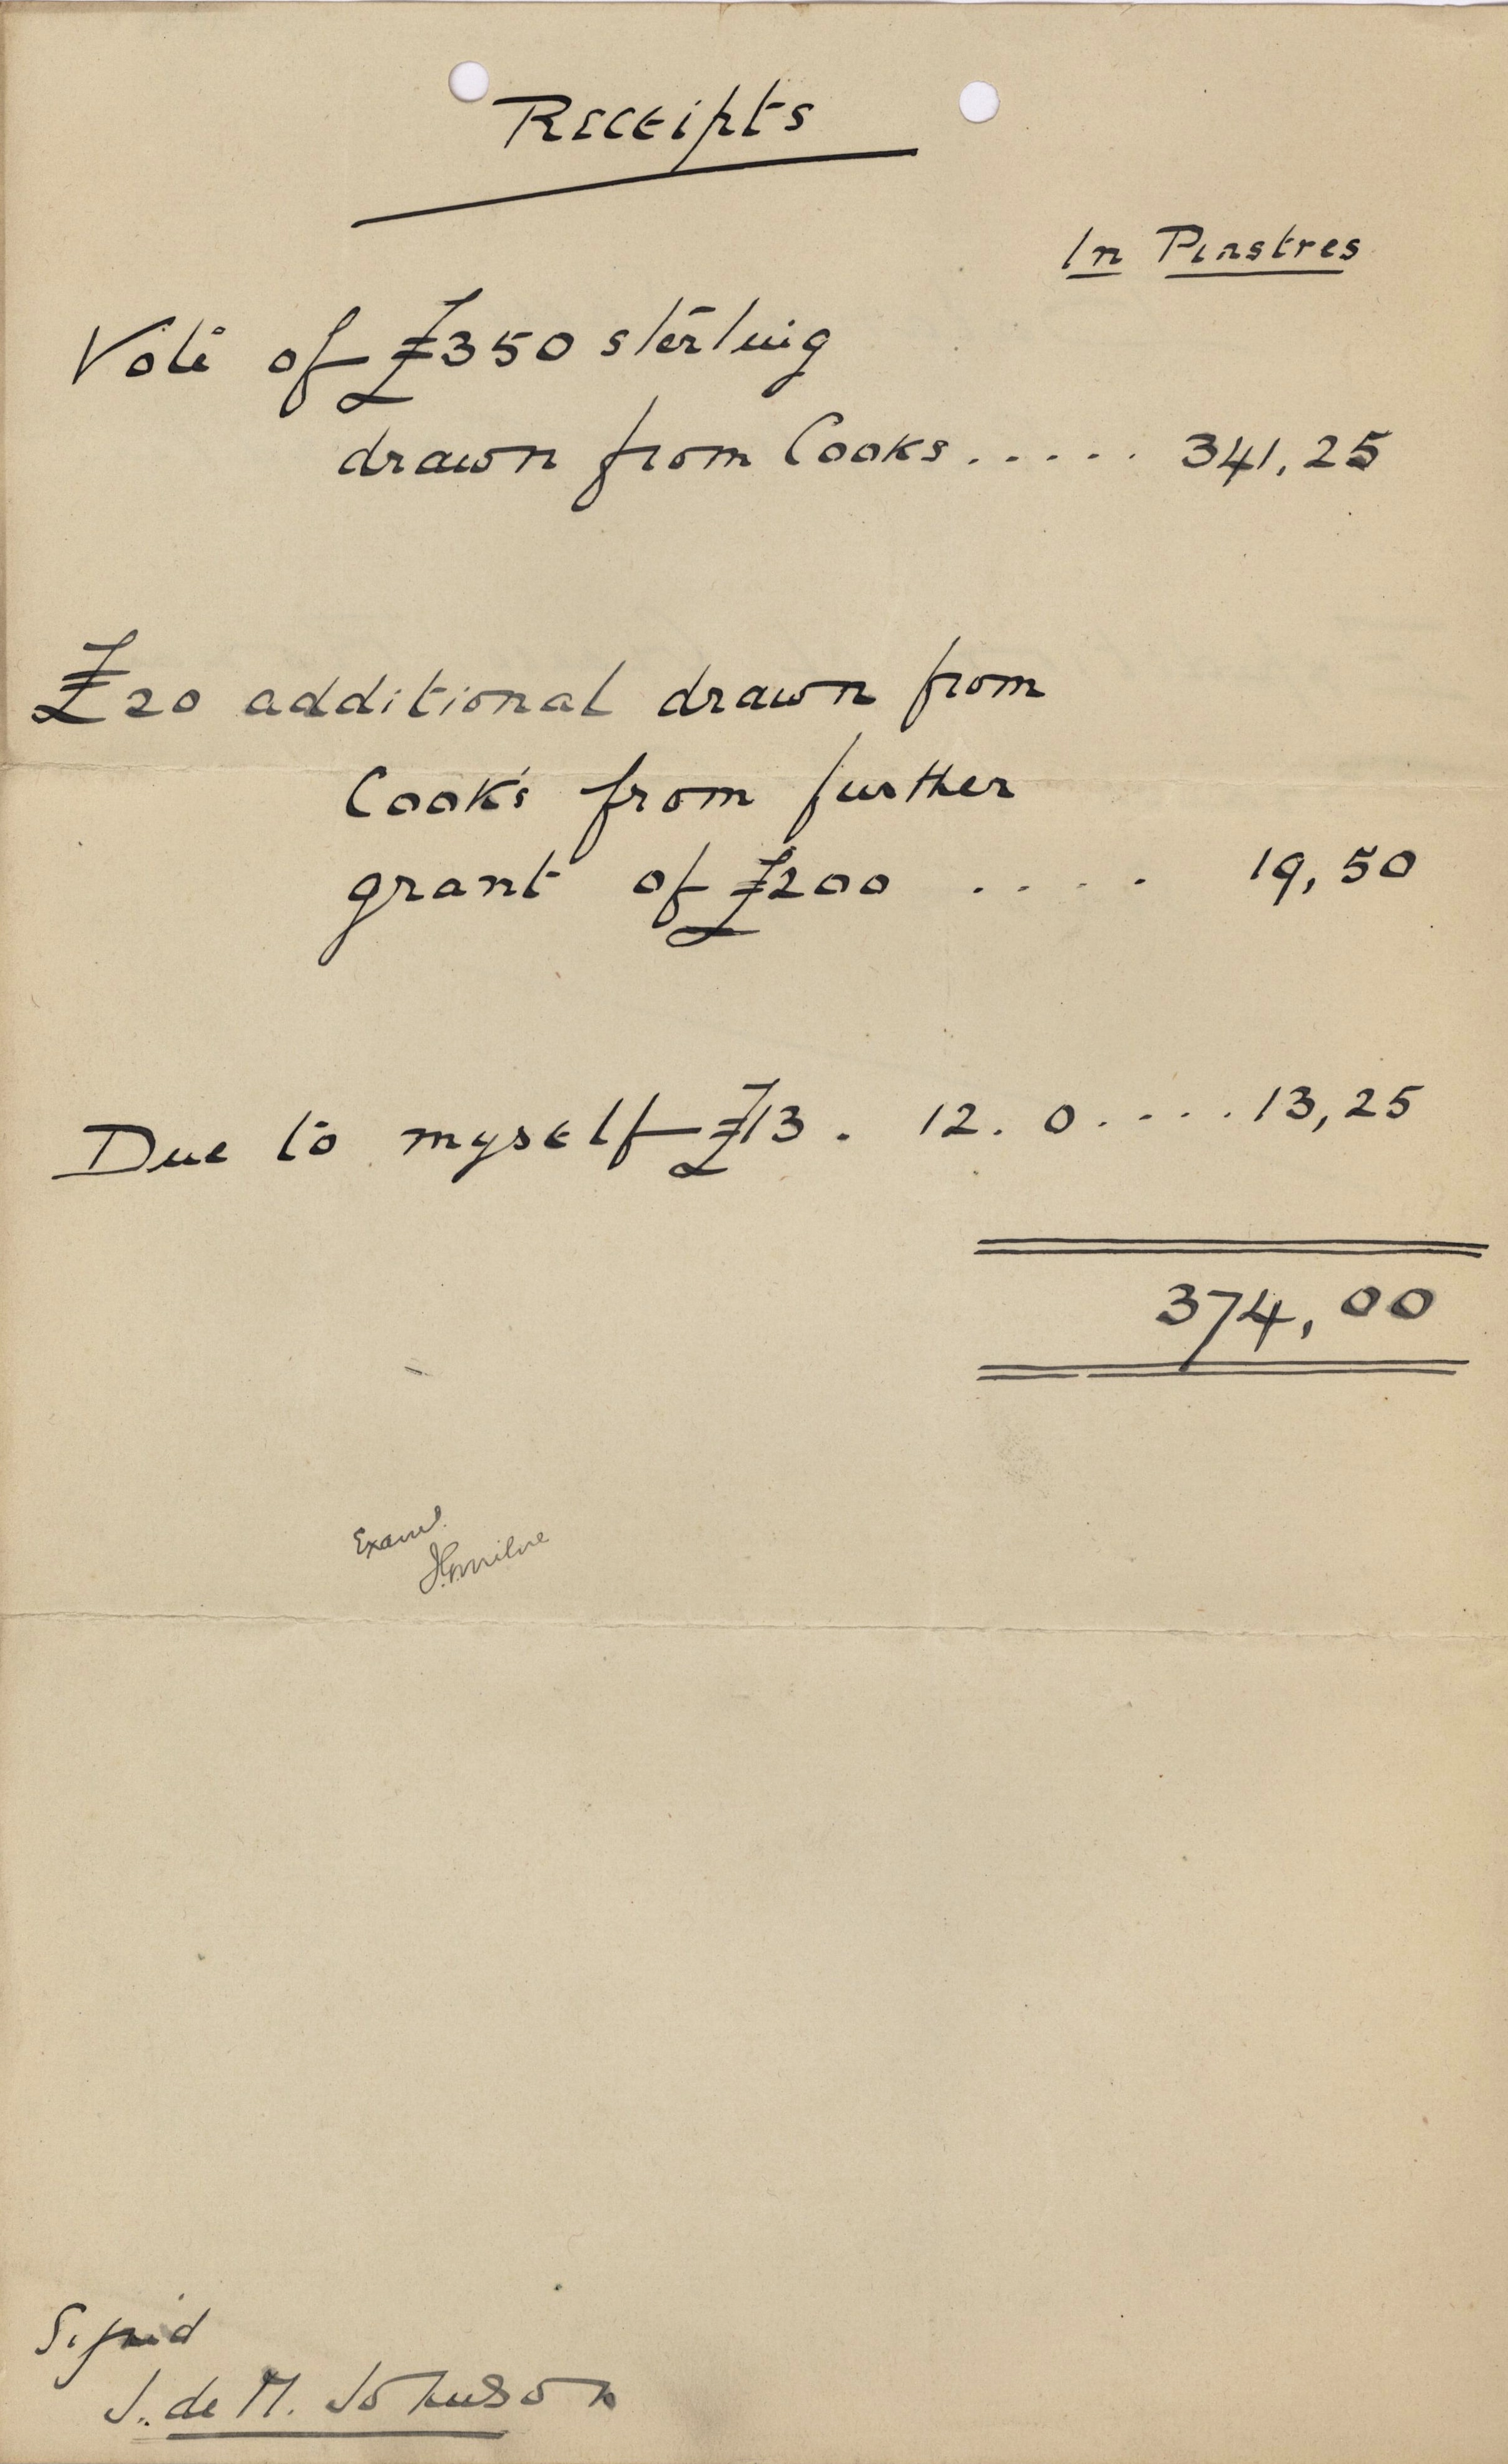 Receipts
In Piastres
Vote of £350 sterling
drawn from Cooks ..... 341,25
£20 additional drawn from
Cook's from further
grant of £200 .... 19,50
Due to myself £13. 12. 0 .... 13,25
374,00
Examd.
Milne
Signed
J. de M. Johnson